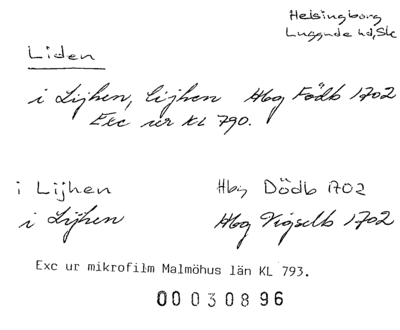 Helsingborg
Luggude hd, Sk
Liden
i Lijhen, Lijhen Hbg Födb 1702
Exc ur KL 790.
i Lijhen Hbg Dödb 1702
i Lijhen Hbg Vigselb 1702
Exc ur mikrofilm Malmöhus län KL 793.
00030896